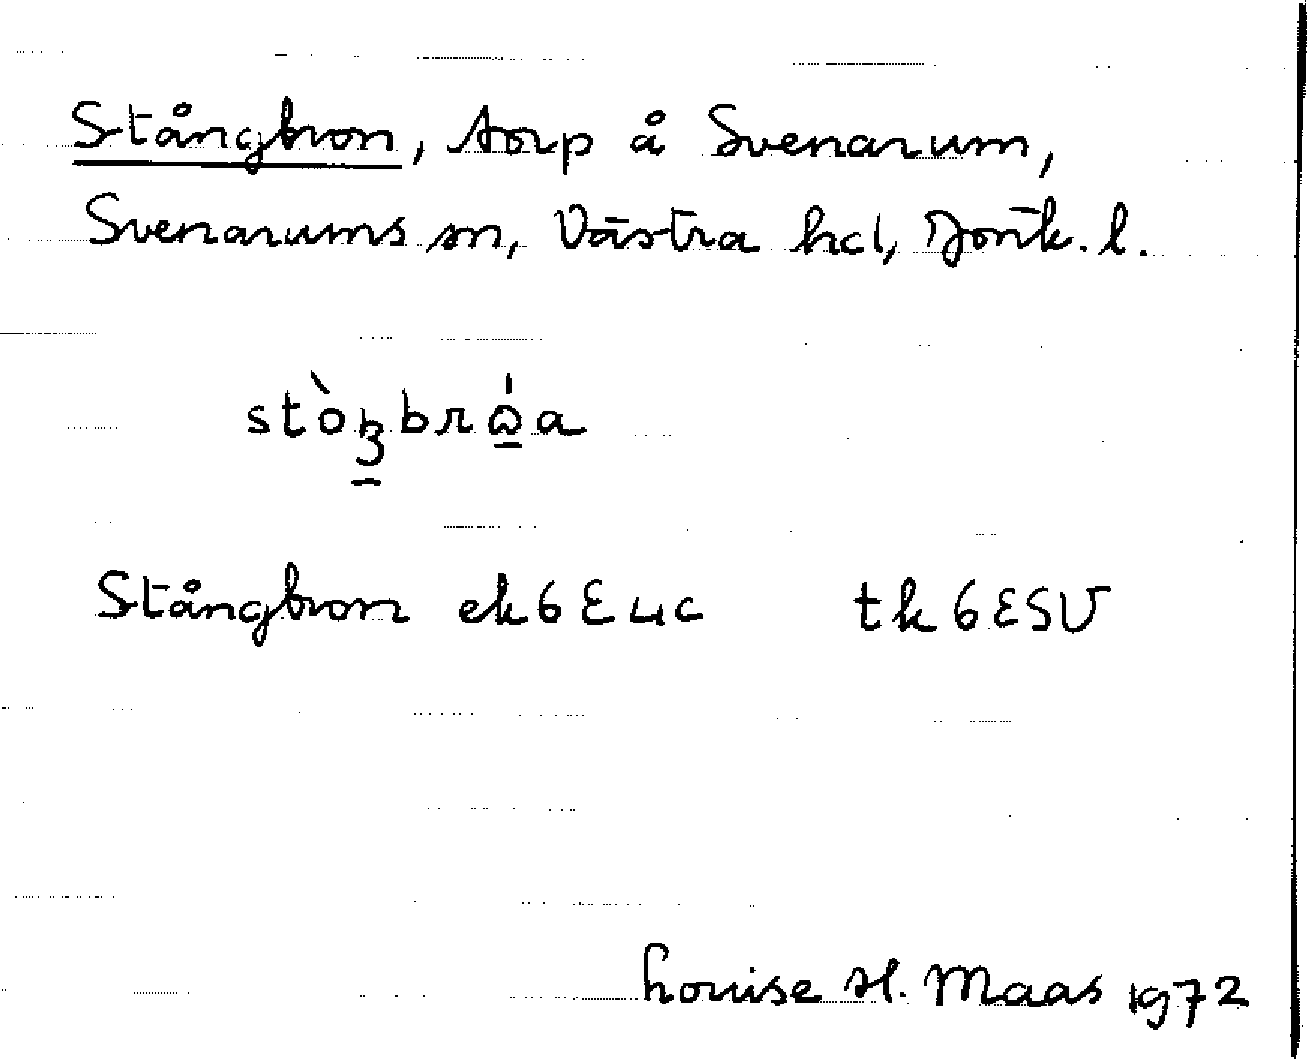 Stångbron, torp å Svenarum,
Svenarums sn, Västra hd, Jönk. l.
Stångbron ek 6E4c tk 6ESV
Louise H. Maas 1972